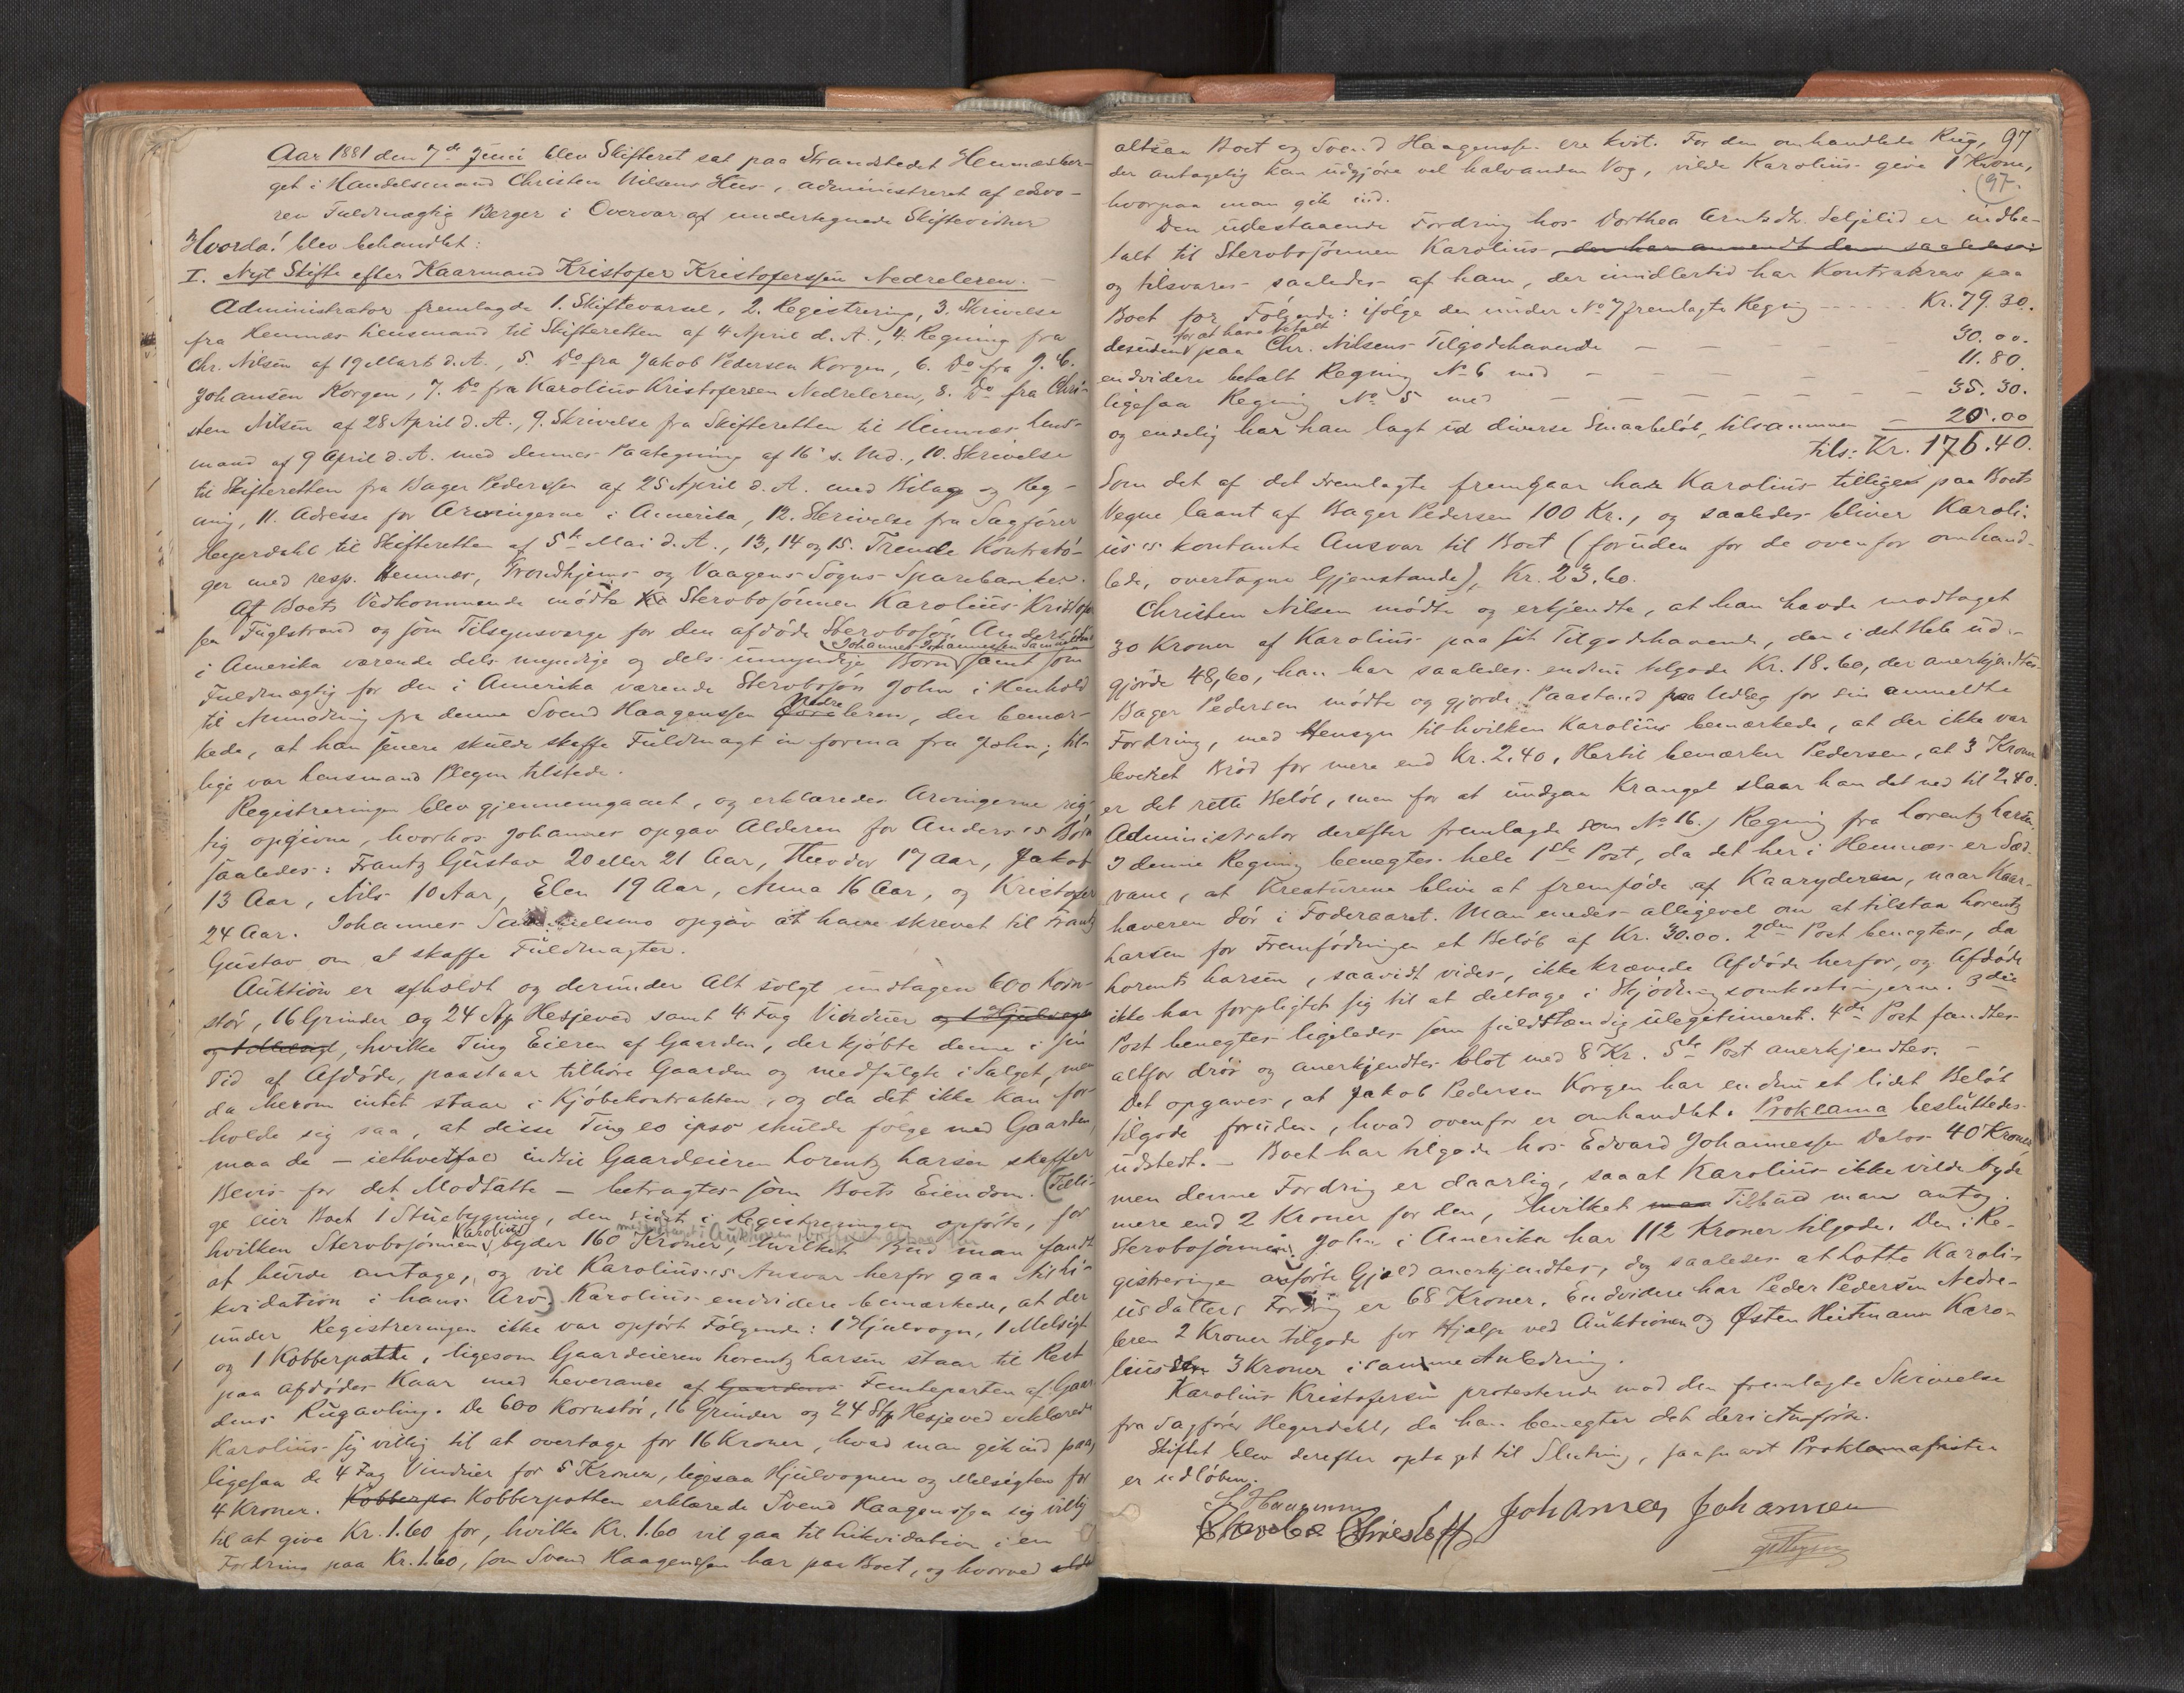 Aar 1881 den 7de Juni blev Skifteret sat paa Strandstedet Hemnæsber-
get i Handelsmand Christen Nilsens Hus, administreret af edsvo-
ren Fuldmægtig Berger i Overvær af undertegnede Skiftevidner
Hvorda! blev behandlet:
I. Nyt Skifte efter Kaarmand Kristofer Kristoferssen Nedreleren.
Administrator fremlagde 1. Skiftevarsel, 2. Registrering, 3. Skrivelse
fra Hemnæs Lensmand til Skifteretten af 4 April d. A., 4. Regning fra
Chr. Nilsen af 19 Marts d. A., 5. Do fra Jakob Pedersen Korgen, 6. Do fra J. C.
Johansen Korgen, 7. Do fra Karolius Kristofersen Nedreleren, 8. Do fra Chri-
sten Nilsen af 28 April d. A., 9. Skrivelse fra Skifteretten til Hemnæs Lens-
mand af 9 April d. A. med dennes Paategning af 16 s. Md., 10. Skrivelse
til Skifteretten fra Bager Pederssen af 25 April d. A. med Bilag og Reg-
ning, 11. Adresse for Arvingerne i Amerika, 12. Skrivelse fra Sagfører
Hegerdahl til Skifteretten af 5te Mai d. A., 13, 14 og 15. Trende Kontrabø-
ger med resp. Hemnæs, Trondhjems og Vaagens Sogns Sparebanker.
Af Boets Vedkommende mødte Kr Stervbosønnen Karolius Kristofer-
sen Fuglstrand og som Tilsynsværge for den afdøde Stervbosøn Anders's
i Amerika værende dels myndige og dels umyndige Børn Johannes Johannessen samt som
Fuldmægtig for den i Amerika værende Stervbosøn John i Henhold
til Anmodning fra denne Svend Haagenssen Øvre Nedre leren, der bemær-
kede, at han senere skulde skaffe Fuldmagt in forma fra John; til-
lige var Lensmand Plegen tilstede.
Registreringen blev gjennemgaaet, og erklæredes Arvingerne rig-
tig opgivne, hvorhos Johannes opgav Alderen for Anders's Børn
saaledes: Frantz Gustav 20 eller 21 Aar, Theodor 17 Aar, Jakob
13 Aar, Nils 10 Aar, Elen 19 Aar, Anna 16 Aar, og Kristofer
24 Aar. Johannes opgav at have skrevet til Frantz
Gustav om at skaffe Fuldmagter.
Auktion er afholdt og derunder Alt solgt undtagen 600 Korn-
stør, 16 Grinder og 24 Stp Hesjeved samt 4 Fag Vinduer og 1 Hjulvogn
og 1 Melsigt, hvilke Ting Eieren af Gaarden, der kjøbte denne i sin
Tid af Afdøde, paastaar tilhøre Gaarden og medfulgte i Salget, men
da herom intet staar i Kjøbekontrakten, og da det ikke kan for-
holde sig saa, at disse Ting eo ipso skulde følge med Gaarden,
maa de – iethvertfald indtil Gaardeieren Lorentz Larsen skaffer
Bevis for det Modsatte – betragtes som Boets Eiendom. (Tilli-
ge eier Boet 1 Stuebygning, den sidst i Registreringen opførte, for
hvilken Stervbosønnen Karolius byder 160 Kroner, hvilket Bud man fandt
at burde antage, og vil Karolius's Ansvar herfor gaa til Li-
kvidation i hans Arv). Karolius endvidere bemærkede, at der
under Registreringen ikke var opført Følgende: 1 Hjulvogn, 1 Melsigt
og 1 Kobberpotte, ligesom Gaardeieren Lorentz Larsen staar til Rest
paa Afdødes Kaar med Leverance af Gaardens Femteparten af Gaar-
dens Rugavling. De 600 Kornstør, 16 Grinder og 24 Stp Hesjeved erklærede
Karolius sig villig til at overtage for 16 Kroner, hvad man gik ind paa,
ligesaa de 4 Fag Vinduer for 5 Kroner, ligesaa Hjulvognen og Melsigten for
4 Kroner. Kobberpo Kobberpotten erklærede Svend Haagenssen sig villig
til at give Kr. 1.60 for, hvilke Kr. 1.60 vil gaa til Likvidation i en
Fordring paa Kr. 1.60, som Svend Haagenssen har paa Boet, og hvorved
97
altsaa Boet og Svend Haagenssen ere kvit. For den omhandlede Rug,
der antagelig kan udgjøre vel halvanden Vog, vilde Karolius give 1 Krone,
97.
hvorpaa man gik ind.
Den udestaaende Fordring hos Dorthea Arntsdtr. Seljelid er indbe-
talt til Stervbosønnen Karolius, der har anvendt den saaledes
og tilsvares saaledes af ham, der imidlertid har Kontrakrav paa
Boet for Følgende: ifølge den under No 7 fremlagte Regning Kr. 79.30.
desuden for at have betalt paa Chr. Nilsens Tilgodehavende 30.00.
endvidere betalt Regning No 6 med 11.80.
ligesaa Regning No 5 med 35.30.
og endelig har han lagt ud diverse Smaabeløb, tilsammen 20.00
tils: Kr. 176.40.
Som det af det Fremlagte fremgaar har Karolius tilliges paa Boets
Vegne laant af Bager Pedersen 100 Kr., og saaledes bliver Karoli-
us's kontante Ansvar til Boet (foruden for de ovenfor omhand-
lede, overtagne Gjenstande), Kr. 23.60.
Christen Nilsen mødte og erkjendte, at han havde modtaget
30 Kroner af Karolius paa sit Tilgodehavende, der i det Hele ud-
gjorde 48,60, han har saaledes endnu tilgode Kr. 18.60, der anerkjendtes.
Bager Pedersen mødte og gjorde Paastand paa Udlæg for sin anmeldte
Fordring, med Hensyn til hvilken Karolius bemærkede, at der ikke var
leveret Brød for mere end Kr. 2.40. Hertil bemærker Pedersen, at 3 Kroner
er det rette Beløb, men for at undgaa Krangel slaar han det ned til 2,40.
Administrator derefter fremlagde som No 16.) Regning fra Lorentz Larsen.
I denne Regning benegtes hele 1ste Post, da det her i Hemnæs er Sæd-
vane, at Kreaturene blive at fremføde af Kaaryderen, naar Kaar-
haveren dør i Foderaaret. Man enedes alligevel om at tilstaa Lorentz
Larsen for Fremfødningen et Beløb af Kr. 30.00. 2den Post benegtes, da
Lorents Larsen, saavidt vides, ikke krævede Afdøde herfor, og Afdøde
ikke har forpligtet sig til at deltage i Skjødningsomkostningerne. 3die
Post benegtes ligeledes som fuldstændig ulegitimeret. 4de Post fandtes
altfor drøi og anerkjendtes blot med 8 Kr. 5te Post anerkjendtes. –
Det opgaves, at Jakob Pedersen Korgen har endnu et lidet Beløb
tilgode foruden, hvad ovenfor er omhandlet. Proklama besluttedes
udstedt. – Boet har tilgode hos Edvard Johannessen Dalos 40 Kroner
men denne Fordring er daarlig, saaat Karolius ikke vilde byde
mere end 2 Kroner for den, hvilket man Tilbud man antog.
Stervbosønnen John i Amerika har 112 Kroner tilgode. Den i Re-
gistreringen anførte Gjæld anerkjendtes, dog saaledes at Lotte Karoli-
usdatters Fordring er 68 Kroner. Endvidere har Peder Pedersen Nedre-
leren 2 Kroner tilgode for Hjælp ved Auktionen og Østen Heitmann Karo-
liussen 3 Kroner i samme Anledning.
Karolius Kristofersen protesterede mod den fremlagte Skrivelse
fra Sagfører Hegerdahl, da han benegter det deri Anførte.
Skiftet blev derefter optaget til Slutning, saasnart Proklamafristen
er udløben.
Johannes Johannesen